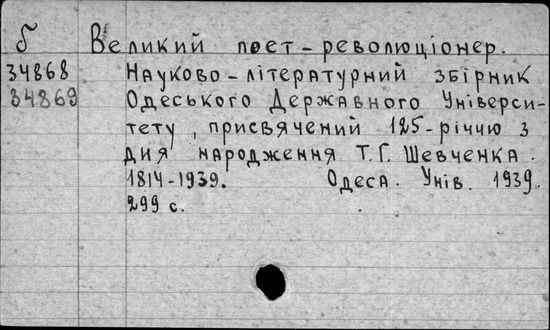 б Великий поет-революціонер.
34868 Науково-літературний збірник
34869 Одеського Державного Універси-
тету, присвячений 125-річчю з
дня народження Т.Г. Шевченка.
1814-1939. Одеса. Унів. 1939.
299 с.